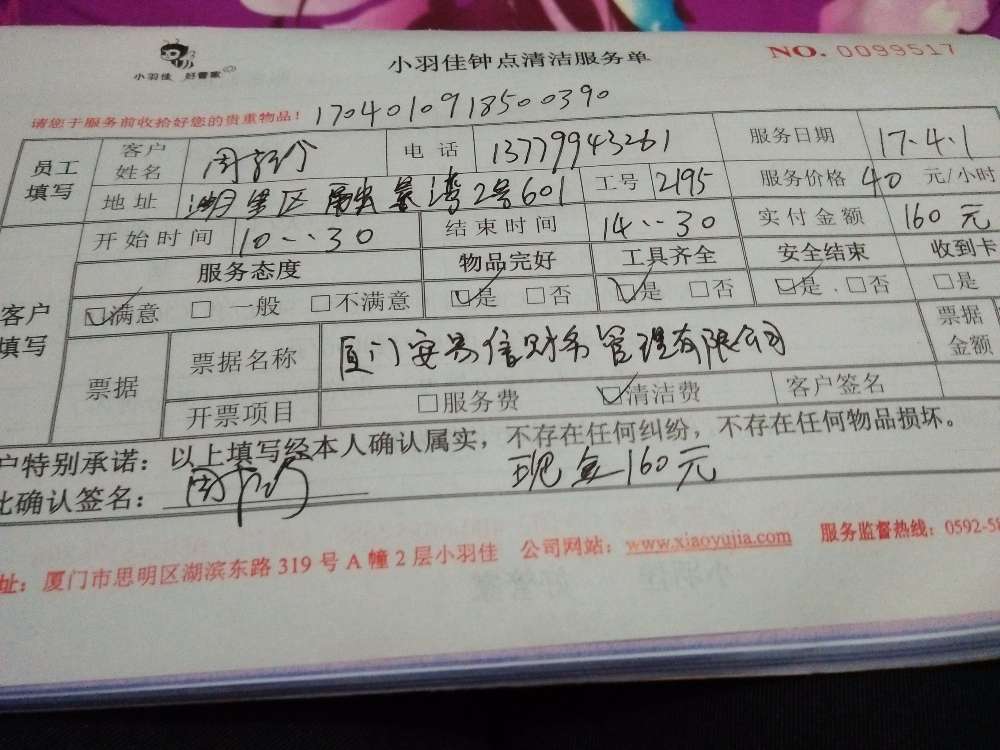 小羽佳 好管家
小羽佳钟点清洁服务单
NO. 0099517
请您于服务前收拾好您的贵重物品!
1704010918500390
员工填写 客户姓名 周 电话 13779943261 服务日期 17.4.1
地址 湖里区 湾2号601 工号 2195 服务价格 40 元/小时
开始时间 10..30 结束时间 14..30 实付金额 160元
客户填写 服务态度 物品完好 工具齐全 安全结束 收到卡
☑满意 □一般 □不满意 ☑是 □否 ☑是 □否 ☑是 □否 □是
票据 票据名称 厦门安易信财务管理有限公司 票据金额
开票项目 □服务费 ☑清洁费 客户签名
户特别承诺:以上填写经本人确认属实,不存在任何纠纷,不存在任何物品损坏。
此确认签名: 周 现金160元
址:厦门市思明区湖滨东路319号A幢2层小羽佳 公司网站:www.xiaoyujia.com 服务监督热线:0592-5